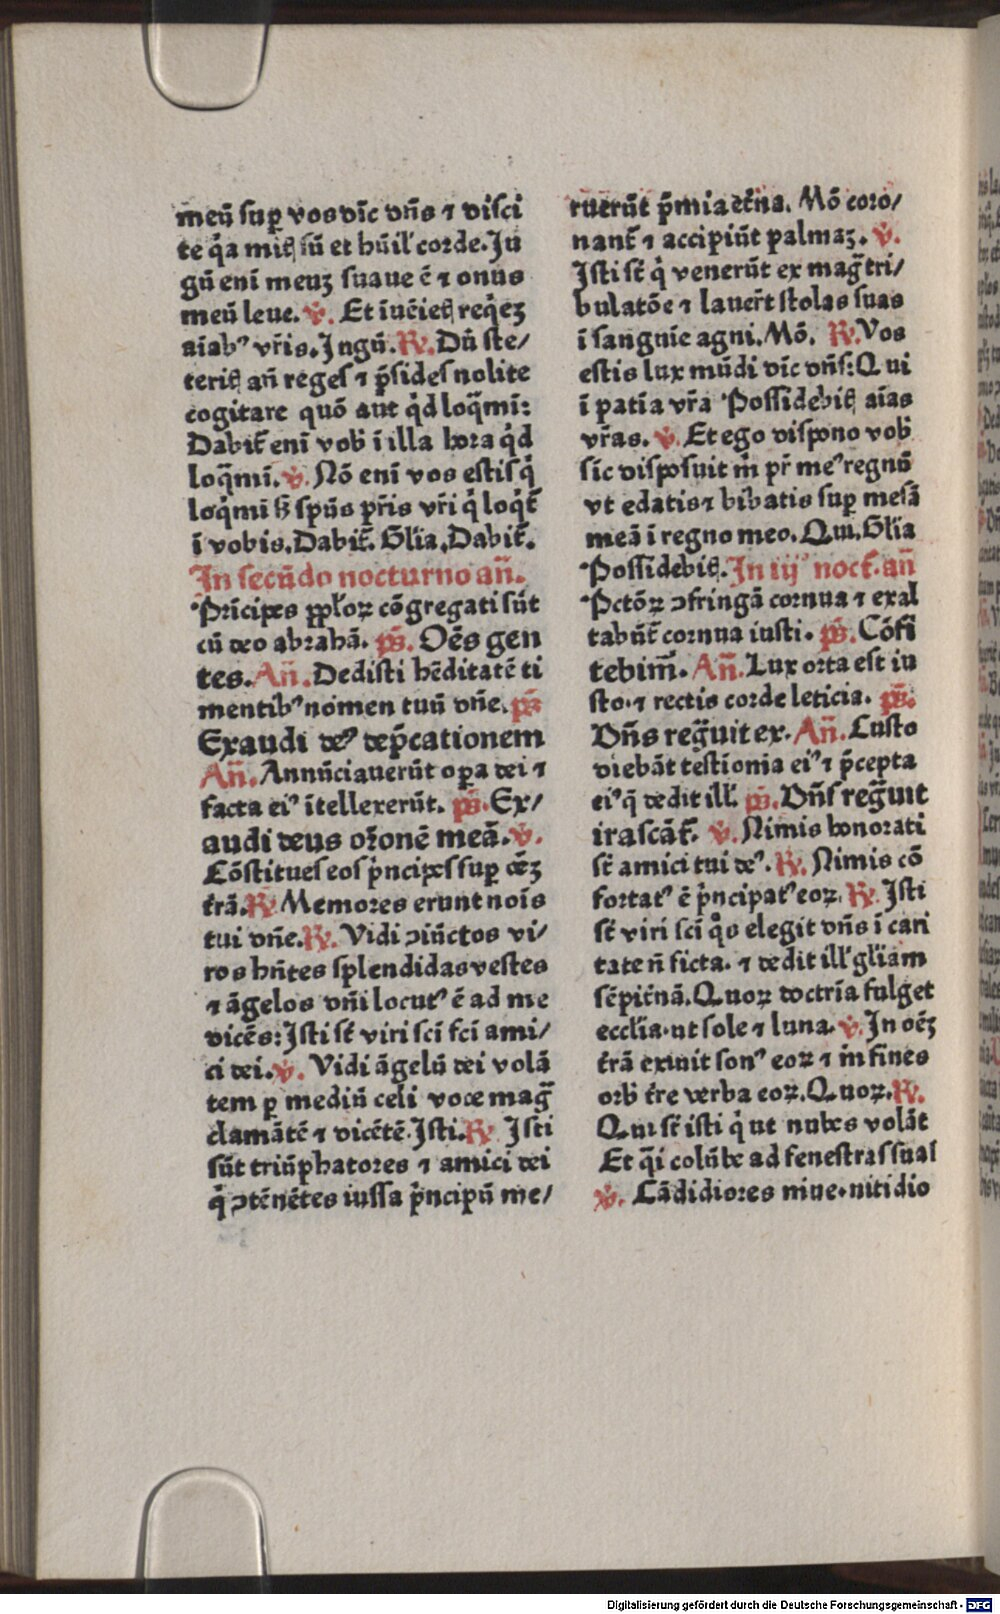 meū sup̱ vos dīc dn̄s ⁊ disci
te q̇a mitꝭ sū et hūil' corde. Ju
gū enī meuȝ suaue ē ⁊ onus
meū leue. v̇. Et īuēietꝭ req̇eȝ
aīabꝰ vr̄is. Jngū. R̷. Dū ste/
teritꝭ an̄ reges ⁊ p̄sides nolite
cogitare quō aut q̇d loq̄mī:
Dabit᷑ enī vob̄ ī illa hora q̇d
loq̄mī. v̇. Nō enī vos estis q̇
loq̇mī ꝫ spūs pr̄is vr̄i q̇ loq̇t᷑
ī vobis. Dabit᷑. Gl̄ia. Dabit᷑.
In secūdo nocturno an̄.
Prīcipes pp̱l'oꝝ cōgregati sūt
cū deo abrahā. ps̄. Oēs gen
tes. An̄. Dedisti hēditatē ti
mentibꝰ nomen tuū dn̄e. ps̄
Exaudi deꝰ dep̄cationem
An̄. Annūciauerūt op̱a dei ⁊
facta eiꝰ ītellexerūt. ps̄. Ex/
audi deus or̄onē meā. v̇.
Cōstitues eos ṗncipes sup̱ oēȝ
t᷑rā. R̷. Memores erunt noīs
tui dn̄e. R̷. Vidi ↄiūctos vi/
ros hn̄tes splendidas vestes
⁊ āgelos dn̄i locutꝰ ē ad me
dicēs: Jsti st᷑ viri sc̄i fc̄i ami/
ci dei. v̇. Vidi āgelū dei volā
tem p̱ mediū celi voce mag̅
clamātē ⁊ dicētē. Jsti. R̷. Jsti
sūt triūphatores ⁊ amici dei
q̇ ↄtēnētes iussa ṗncipū me/
ruerūt p̄mia et᷑na. Mō coro/
nant᷑ ⁊ accipiūt palmaȝ. v̇.
Jsti st᷑ q̇ venerūt ex mag̅ tri/
bulatōe ⁊ lauer̄t stolas suas
ī sanguīe agni. Mō. R̷. Vos
estis lux mūdi dīc dn̄s: Qui
ī patīa vr̄a Possidebitꝭ aīas
vr̄as. v̇. Et ego dispono vob̄
sic disposuit m̄ pr̄ meꝰ regnū
vt edatis ⁊ bibatis sup̱ mēsā
meā ī regno meo. Qui. Gl̄ia
Possidebitꝭ. In iijꝰ noct᷑. an̄
Pctōꝝ ↄfringā cornua ⁊ exal
tabūt᷑ cornua iusti. ps̄. Cōfi
tebim̄. An̄. Lux orta est iu
sto. ⁊ rectis corde leticia. ps̄.
Dn̄s reg̅uit ex. An̄. Custo
diebāt testionia eiꝰ ⁊ p̄cepta
eiꝰ q̄ dedit ill'. ps̄. Dn̄s reg̅uit
irascāt᷑. v̇. Nimis honorati
st᷑ amici tui deꝰ. R̷. Nimis cō
fortatꝰ ē ṗncipatꝰ eoꝝ. R̷. Jsti
st᷑ viri sc̄i q̊s elegit dn̄s ī cari
tate n̄ ficta. ⁊ dedit ill' gl̄iam
sēpit᷑nā. Quoꝝ doctrīa fulget
eccl̄ia. ut sole ⁊ luna. v̇. Jn oēȝ
t᷑rā exiuit sonꝰ eoꝝ ⁊ īn fines
orb̄ t᷑re verba eoꝝ. Quoꝝ. R̷.
Qui st᷑ isti q̇ ut nubes volāt
Et q̄i colūbe ad fenestras suas
v̇. Cādidiores niue. nitidio
Digitalisierung gefördert durch die Deutsche Forschungsgemeinschaft - DFG